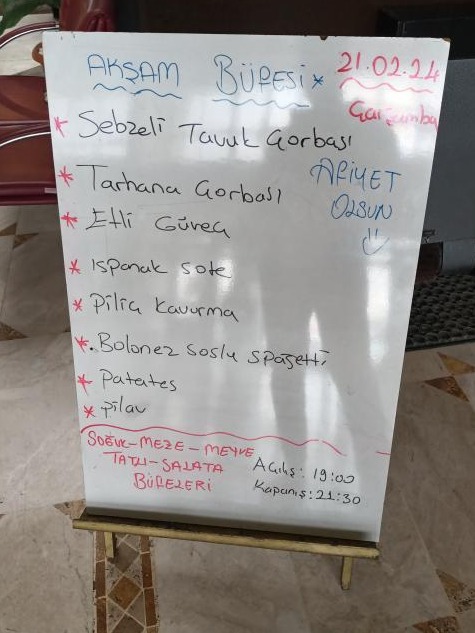 AKŞAM BÜFESİ *
21.02.24
Çarşamba
* Sebzeli Tavuk Çorbası
AFİYET
OLSUN
* Tarhana Çorbası
* Etli Güveç
* Ispanak sote
* Piliç Kavurma
* Bolonez soslu spagetti
* Patates
* pilav
SOĞUK-MEZE-MEYVE
TATLI-SALATA
BÜFELERİ
Açılış: 19:00
Kapanış: 21:30